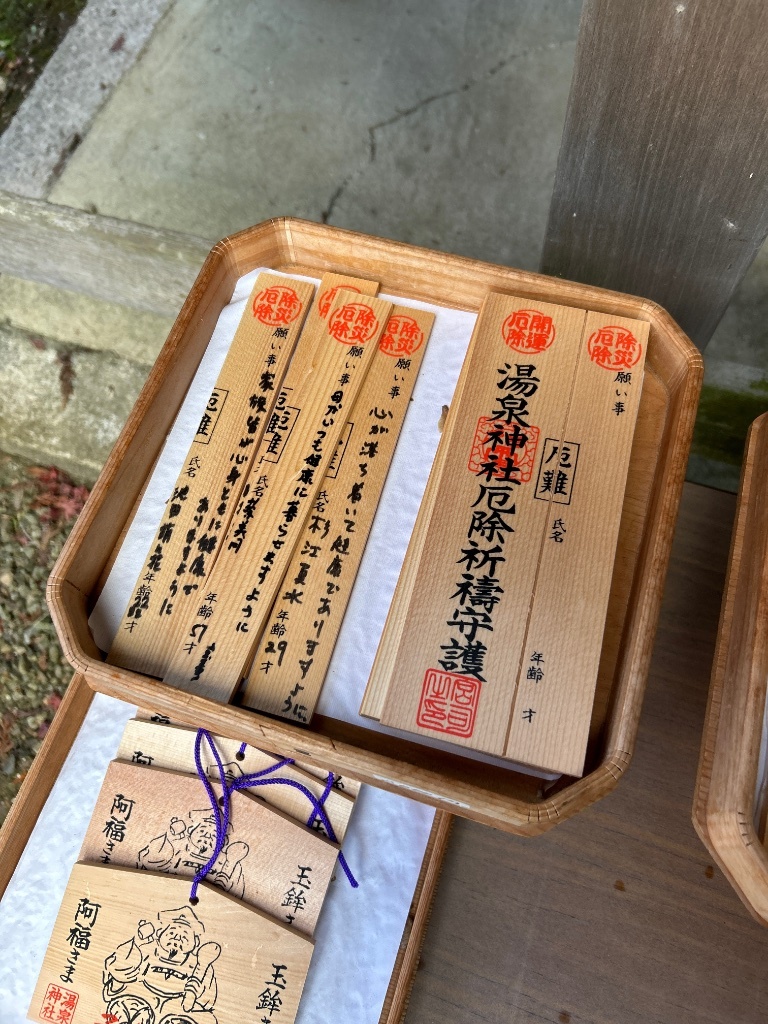 除災
厄除
願い事
家族皆が心身ともに健康で
ありますように
厄難
氏名
年齢
才
除災
厄除
願い事
母がいつも健康に暮らせますように
厄難
氏名
年齢 51 才
除災
厄除
願い事
心が落ち着いて健康でありますように。
氏名 杉江夏水
年齢 29 才
開運
厄除
湯泉神社厄除祈禱守護
宮司
之印
除災
厄除
願い事
厄難
氏名
年齢 才
阿福
阿福さま
玉鉾さ
阿福さま
玉鉾
湯泉
神社